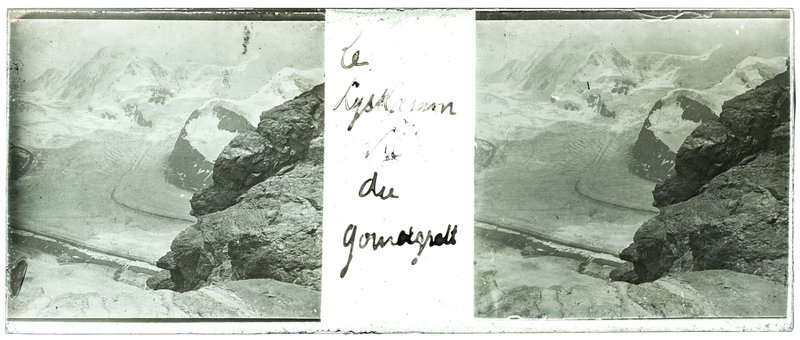 Le
Lyskamm
vu
du
Gornergratt